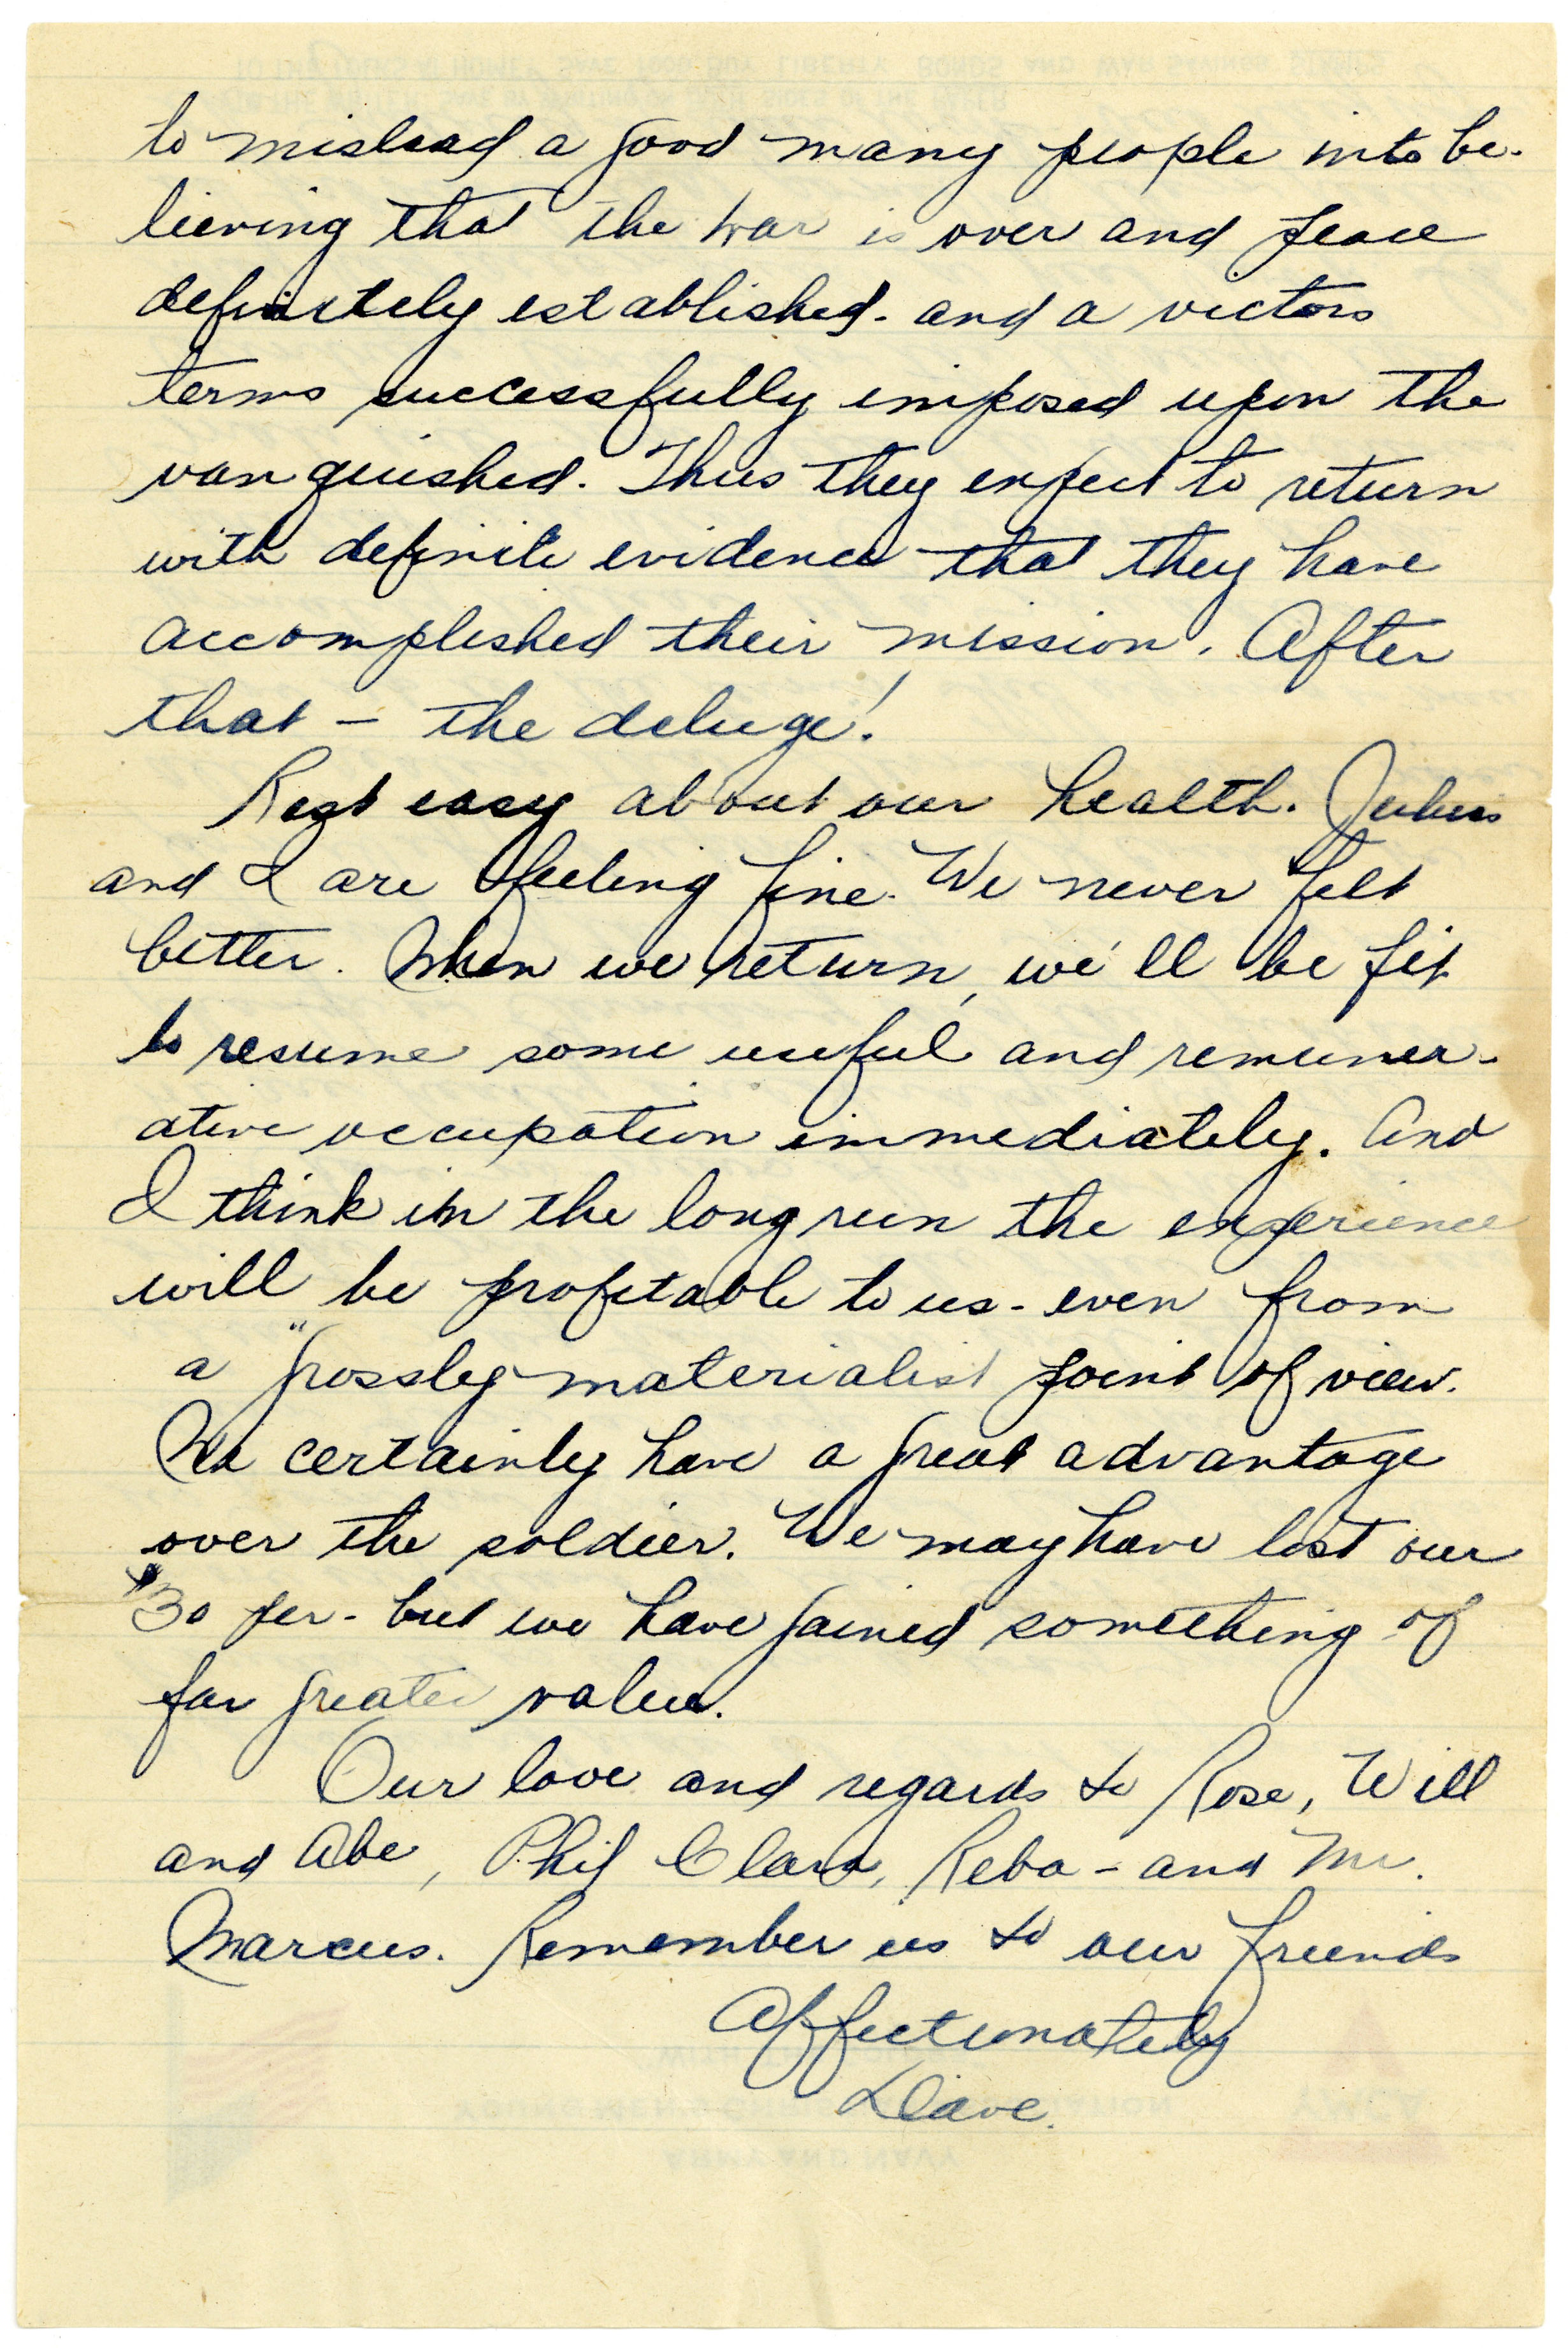 to mislead a good many people into be-
lieving that the war is over and peace
definitely established - and a victors
terms successfully imposed upon the
vanquished. Thus they expect to return
with definite evidence that they have
accomplished their mission. After
that — the deluge!
Rest easy about our health. Julius
and I are feeling fine. We never felt
better. When we return, we'll be fit
to resume some useful and remuner-
ative occupation immediately. And
I think in the long run the experience
will be profitable to us - even from
a "grossly materialist point of view.
We certainly have a great advantage
over the soldier. We may have lost our
$30 per - but we have gained something of
far greater value.
Our love and regards to Rose, Will
and Abe, Phil Clara, Reba - and Mr.
Marcus. Remember us to our friends
Affectionately
Dave.